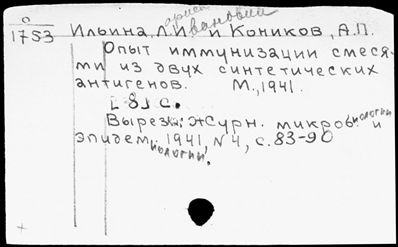 О
1753
Ильина, Л.И. и Коников, А.П.
Ивановии
Опыт иммунизации смеся-
ми из двух синтетических
антигенов. М., 1941.
[8] с.
Вырез. Журн. микробиологии и
эпидемиологии, 1941, N 4, с. 83-90